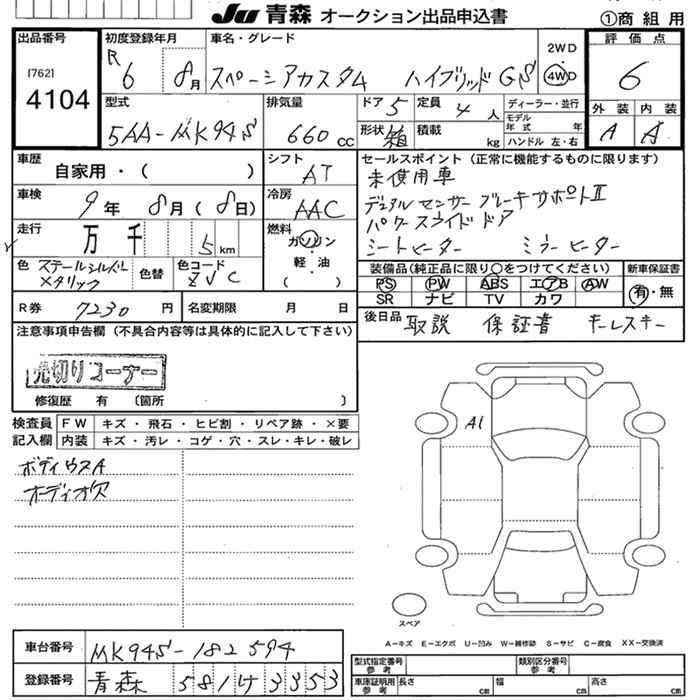 JU 青森 オークション出品申込書
①商組用
出品番号
[762]
4104
初度登録年月
R6 8月
車名・グレード
スペーシアカスタム ハイブリッドGS
2WD
4WD
評価点
6
外装 内装
A A
型式
5AA-MK94S
排気量
660cc
ドア 5
定員 4人
形状 箱
積載 kg
ディーラー・並行
モデル年式 年
ハンドル 左・右
車歴
自家用・( )
シフト
AT
車検
9年 8月(8日)
冷房
AAC
走行
万千 5km
燃料
ガソリン
軽・油
( )
色 スチールシルバーメタリック
色替
色コード ZVC
R券 7230円
名変期限 月 日
セールスポイント(正常に機能するものに限ります)
未使用車
デュアルセンサーブレーキサポートII
パワースライドドア
シートヒーター ミラーヒーター
装備品(純正品に限り○をつけてください)
PS PW ABS エアB AW
SR ナビ TV カワ
新車保証書
有・無
後日品 取説 保証書 キーレスキー
注意事項申告欄(不具合内容等は具体的に記入して下さい)
売切りコーナー
修復歴 有 〔箇所 〕
検査員記入欄
FW キズ・飛石・ヒビ割・リペア跡・×要
内装 キズ・汚レ・コゲ・穴・スレ・キレ・破レ
ボディウスA
オーディオ欠
A1
スペア
A-キズ E-エクボ U-凹み W-補修跡 S-サビ C-腐食 XX-交換済
車台番号 MK94S-182594
登録番号 青森 581 け 3353
型式指定番号 参考
類別区分番号 参考
車庫証明用 参考
長さ cm 幅 cm 高さ cm